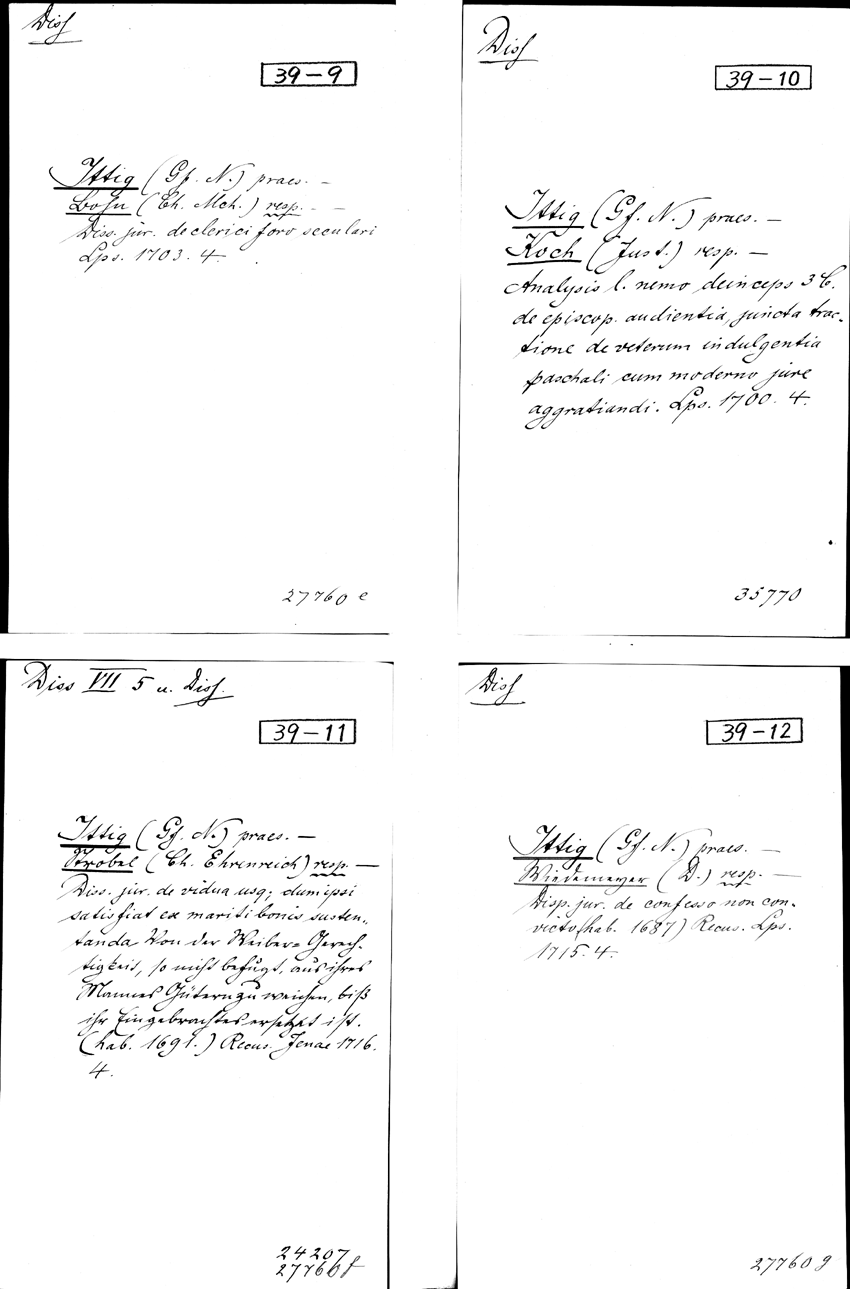 Diss
39-9
Ittig (Gf. N.) praes. —
Bosn (Ch. Mch.) resp. - —
Diss. jur. de clerici foro seculari
Lps. 1703. 4.
27760 e
Diss
39-10
Ittig (Gf. N.) praes. —
Koch (Just.) resp. —
Analysis l. nemo deinceps 3 C.
de episcop. audientia, juncta trac-
tione de veterum indulgentia
paschali cum moderno jure
aggratiandi. Lps. 1700. 4.
35770
Diss VII 5 u. Diss.
39-11
Ittig (Gf. N.) praes. —
Strobel (Ch. Ehrenreich) resp. —
Diss. jur. de vidua usq; dum ipsi
satisfiat ex mariti bonis susten-
tanda Von der Weiber= Gerech-
tigkeit, so nicht befugt, aus ihres
Mannes Gütern zu weichen, biß
ihr Eingebrachtes ersetzt ist.
(hab. 1691.) Recus. Jenae 1716.
4.
24207
27760 f
Diss
39-12
Ittig (Gf. N.) praes. —
Wiedemeyer (D.) resp. —
Disp. jur. de confesso non con-
victo (hab. 1687) Recus. Lps.
1715. 4.
27760 g